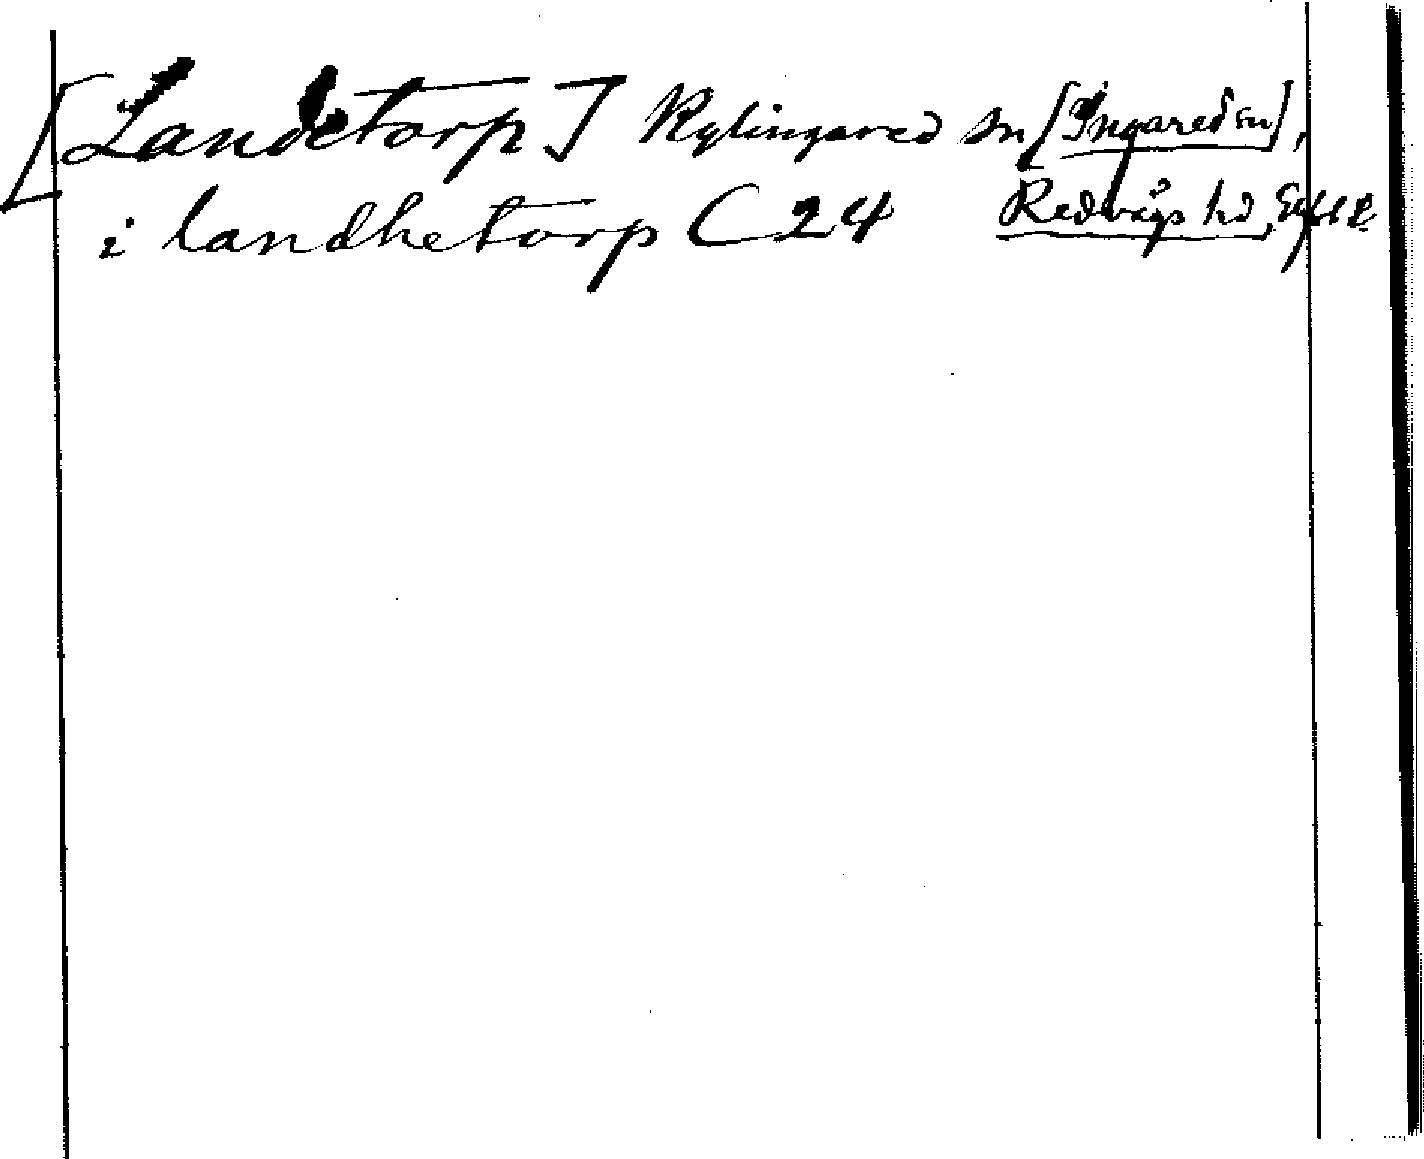 [Landetorp] Kylingared sn [Ingared sn],
i landhetorp C 24 Redvägs hd, Älvsb l